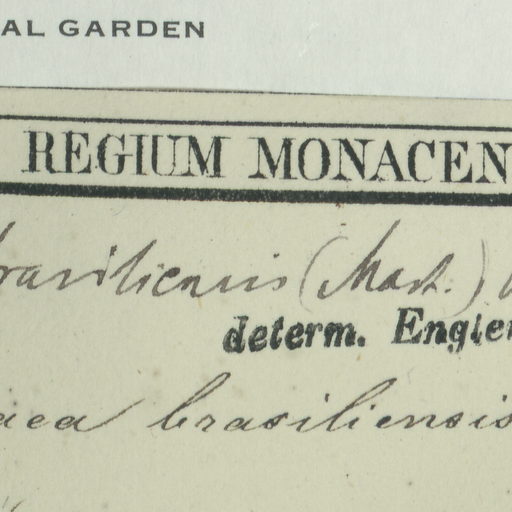 AL GARDEN
REGIUM MONACEN
brasiliensis (Mart.)
determ. Engler
aea brasiliensis